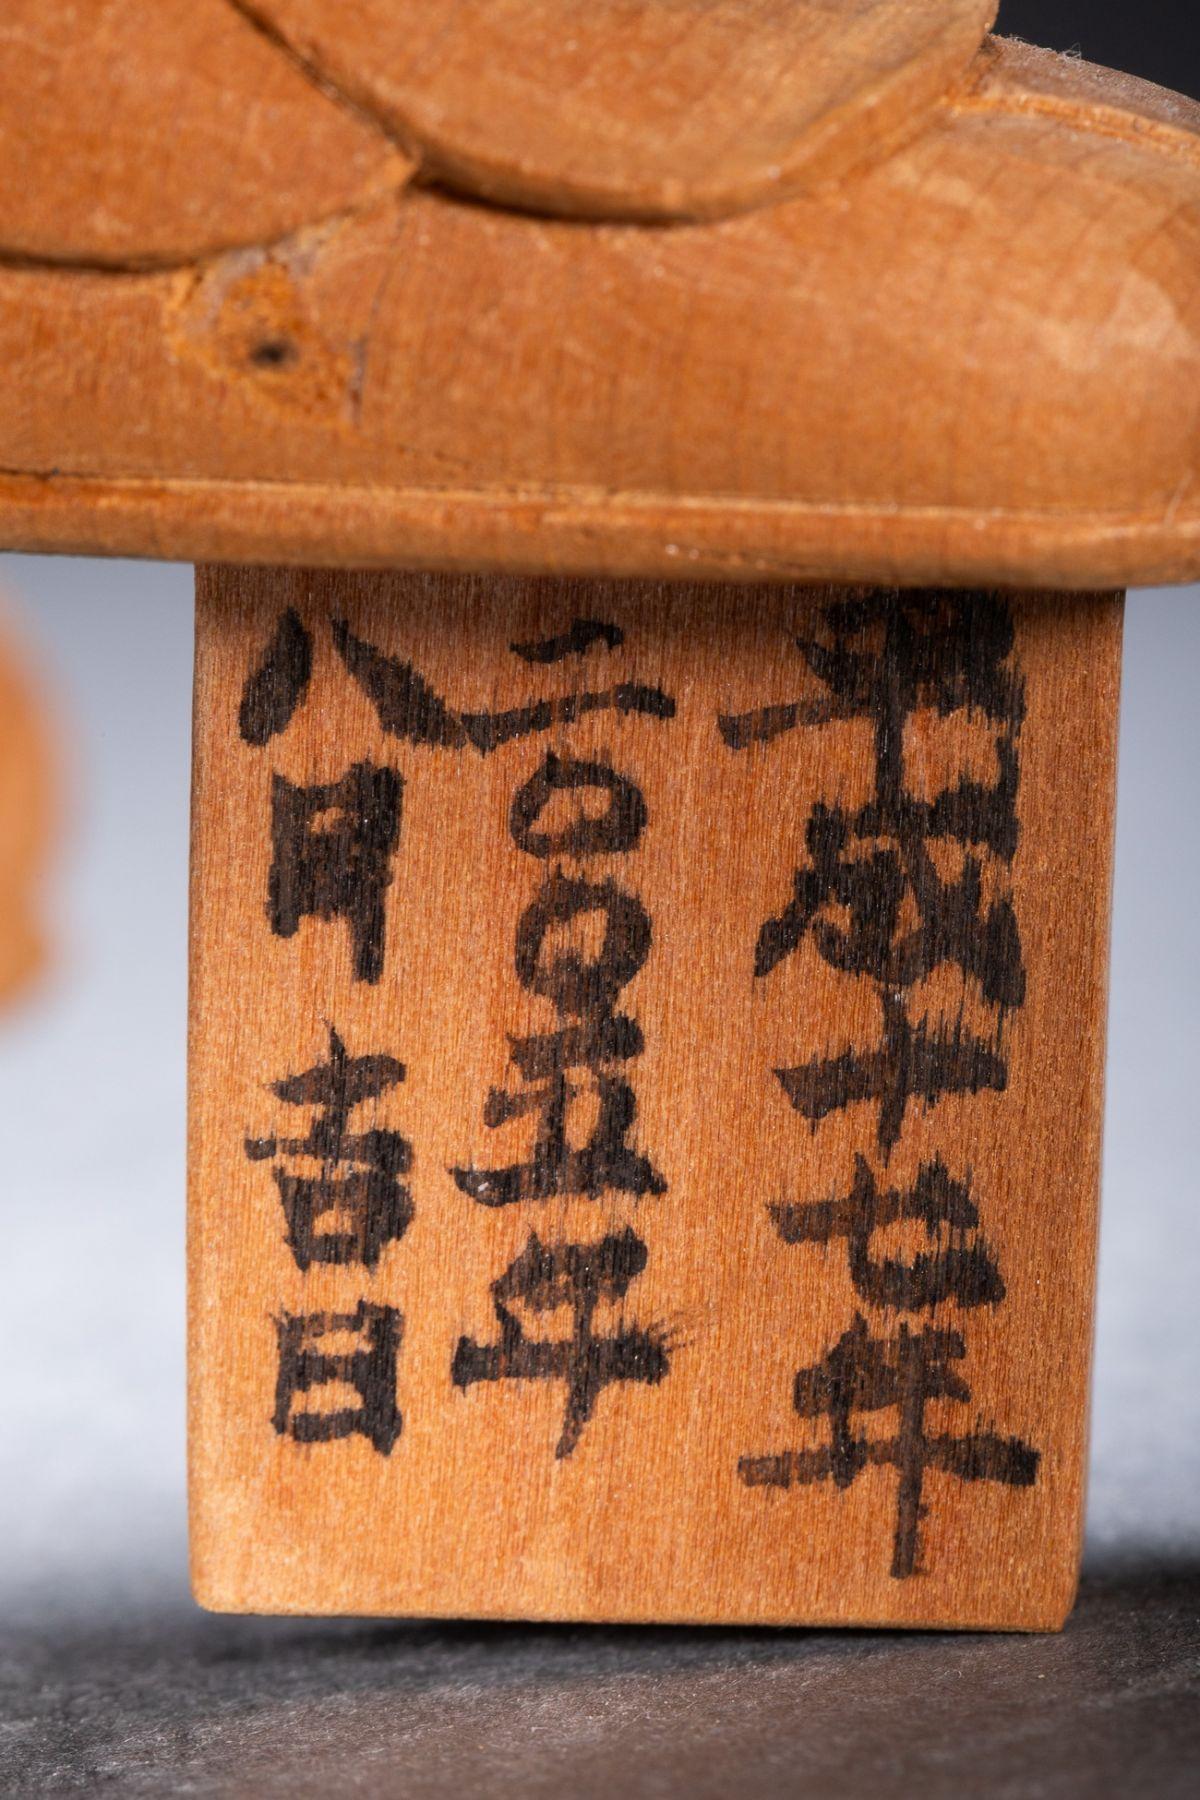 平成十七年
二〇〇五年
八月吉日